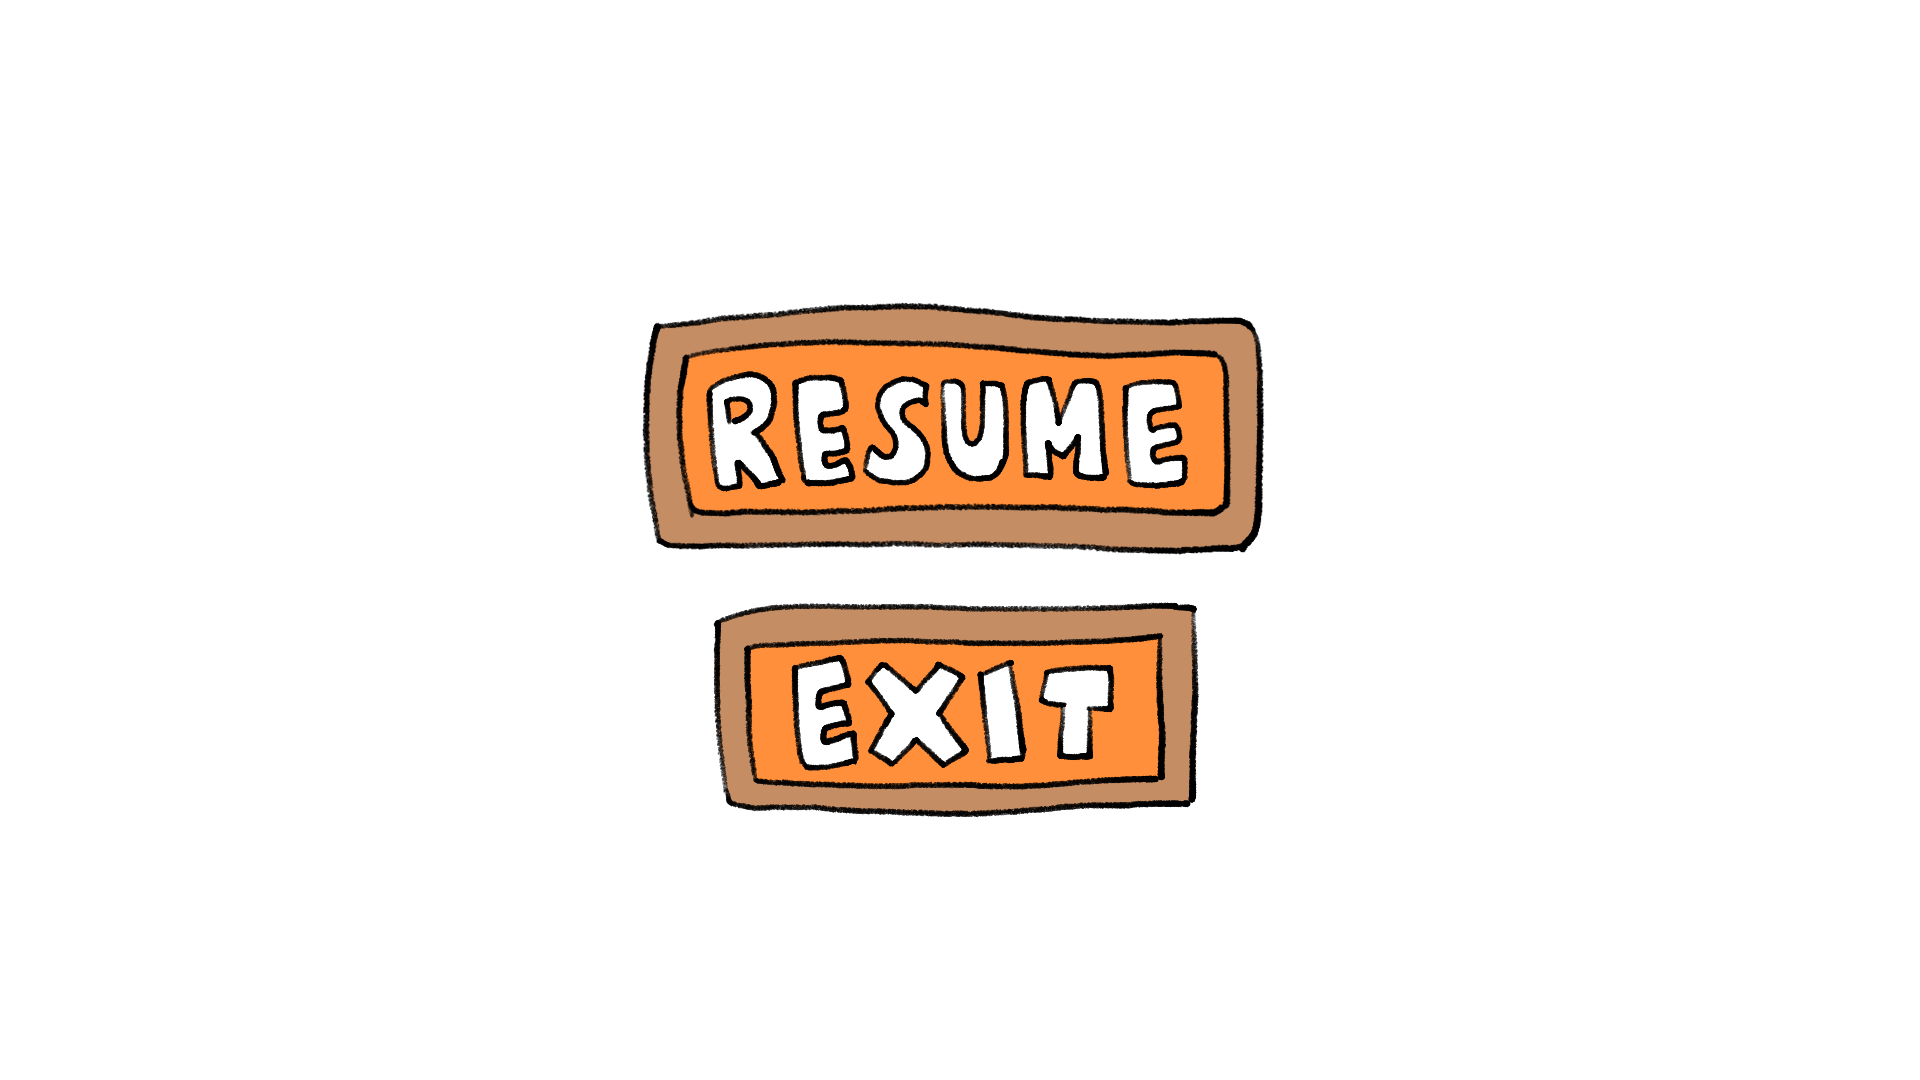 RESUME
EXIT